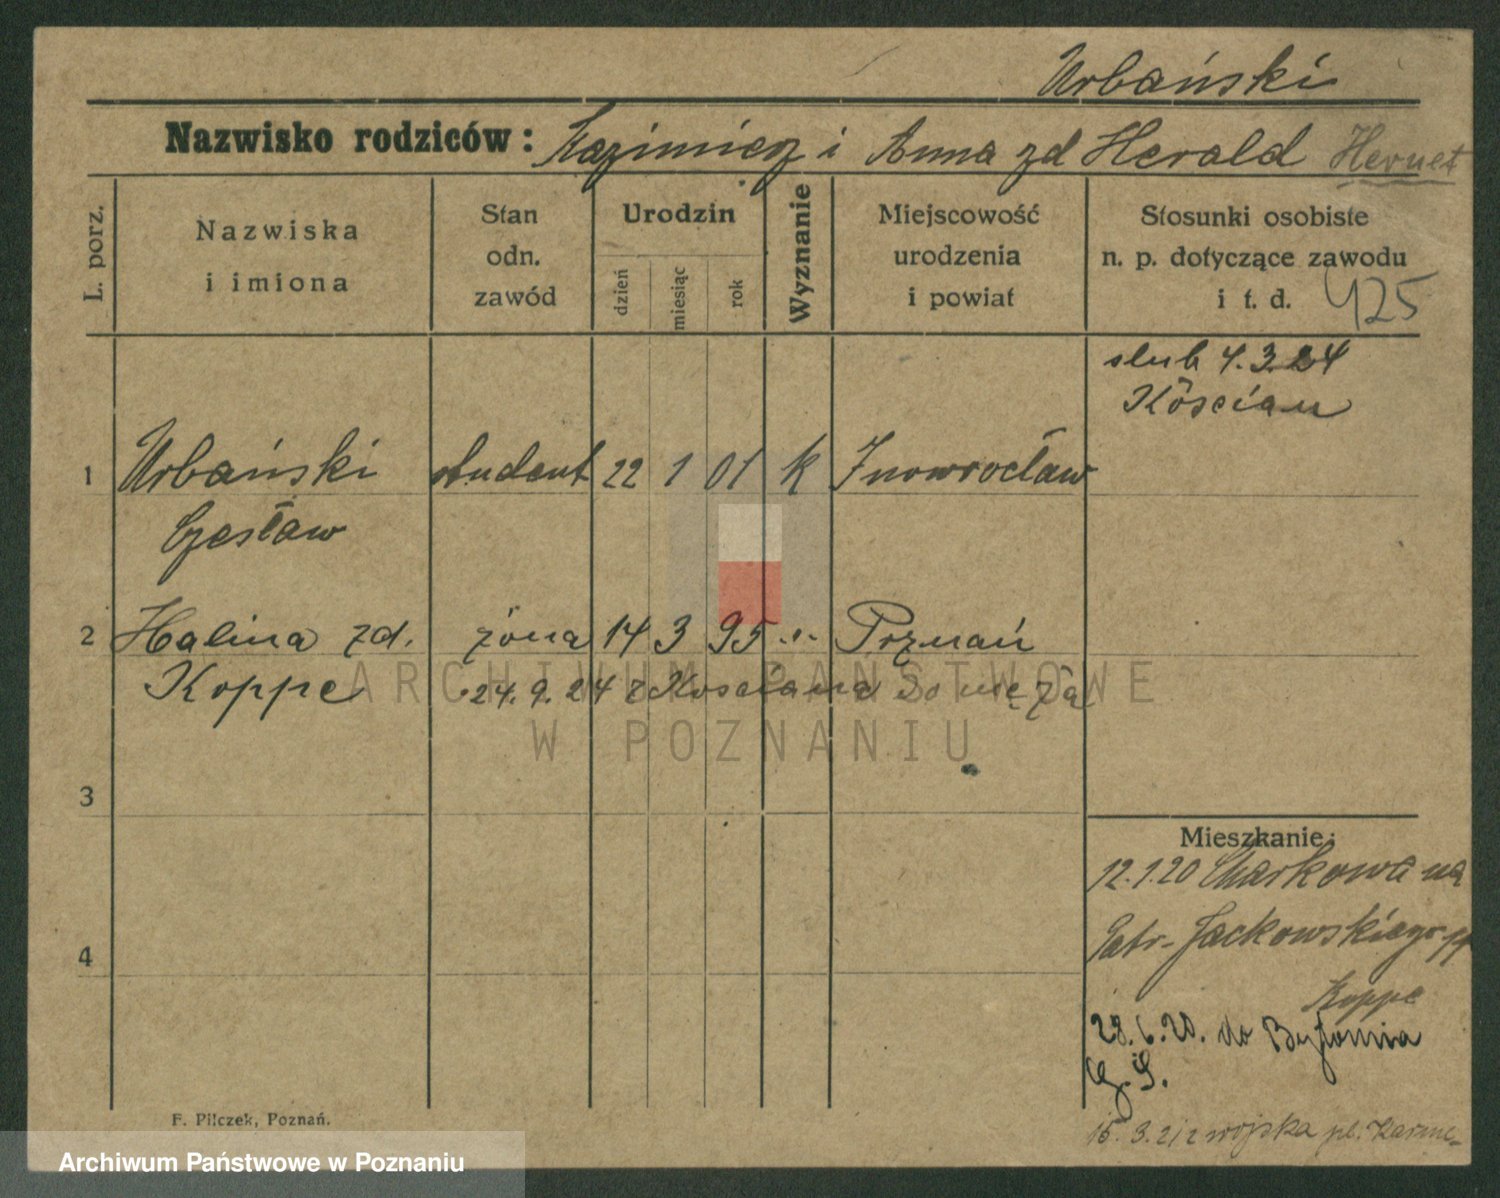 Urbański
Nazwisko rodziców: Kazimierz i Anna zd Herald Hernet
L. porz.
Nazwiska
i imiona
Stan
odn.
zawód
Urodzin
dzień
miesiąc
rok
Wyznanie
Miejscowość
urodzenia
i powiat
Stosunki osobiste
n. p. dotyczące zawodu
i t. d. 425
slub 4.3.24
Kościan
1 Urbański student 22 1 01 k Inowrocław
Czesław
2 Halina zd. żona 14 3 95 -"- Poznań
Koppe 24.9.24 z Kościana do męża
ARCHIWUM PAŃSTWOWE
W POZNANIU
3
4
Mieszkanie:
12.1.20 Charkowa na
Patr-Jackowskiego
Koppe
28.6.20. do Bytomia
G. S.
15.3.21 z wojska pl.
F. Pilczek, Poznań.
Archiwum Państwowe w Poznaniu